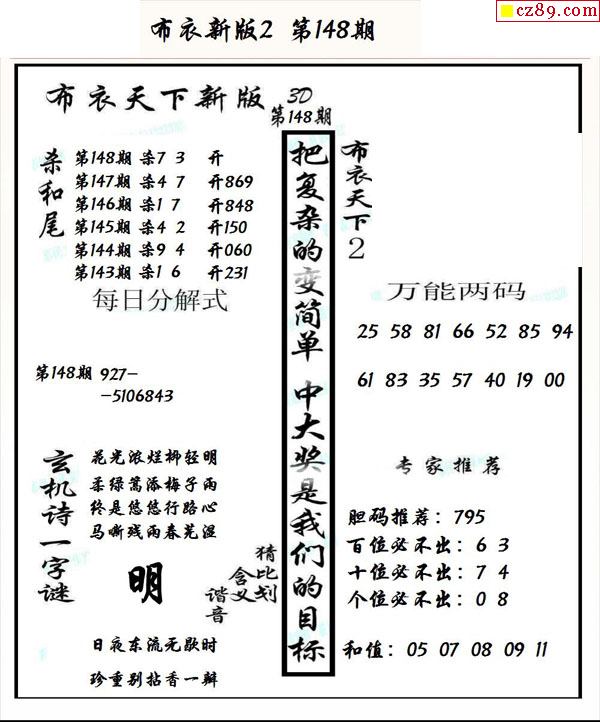 cz89.com
布衣新版2 第148期
布衣天下新版 3D
第148期
杀和尾
第148期 杀7 3 开
第147期 杀4 7 开869
第146期 杀1 7 开848
第145期 杀4 2 开150
第144期 杀9 4 开060
第143期 杀1 6 开231
每日分解式
第148期 927-
-5106843
玄机诗一字谜
花光浓烂柳轻明
柔绿篙添梅子雨
终是悠悠行路心
马嘶残雨春芜湿
明
猜比划
含义
谐音
日夜东流无歇时
珍重别拈香一瓣
把复杂的变简单 中大奖是我们的目标
布衣天下2
万能两码
25 58 81 66 52 85 94
61 83 35 57 40 19 00
专家推荐
胆码推荐：795
百位必不出：6 3
十位必不出：7 4
个位必不出：0 8
和值：05 07 08 09 11